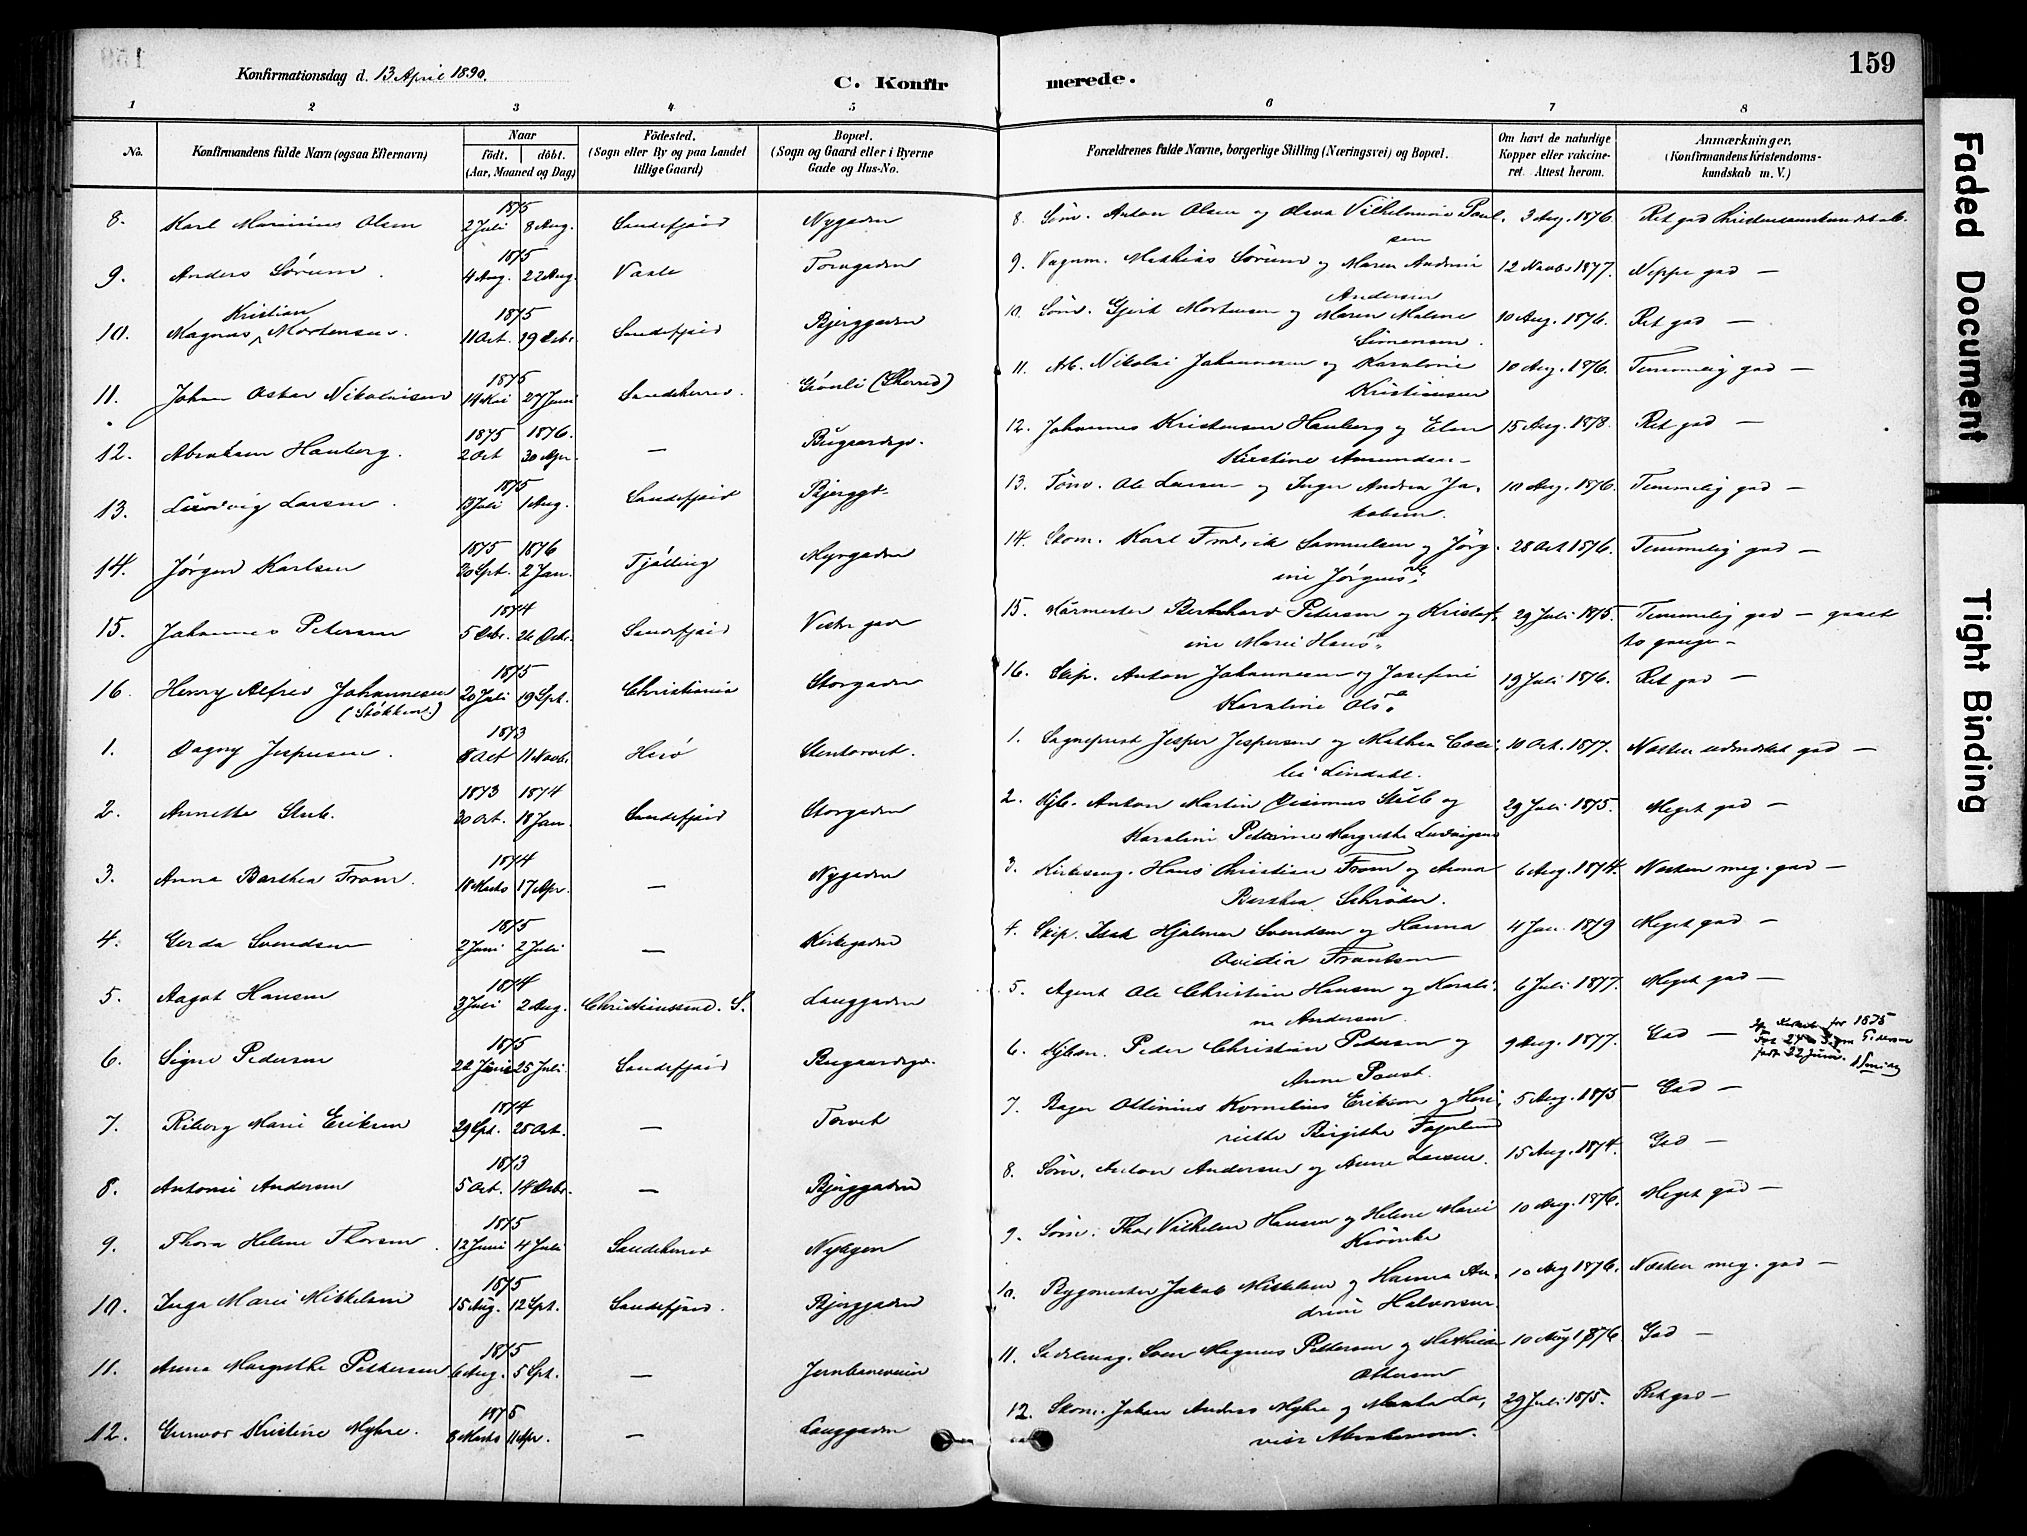 159
Konfirmationsdag d. 13 April 1890.
C. Konfir merede.
1 2 3 4 5 6 7 8
No. Konfirmandens fulde Navn (ogsaa Efternavn) Naar født. døbt. (Aar, Maaned og Dag) Födested. (Sogn eller By og paa Landet tillige Gaard) Bopæl. (Sogn og Gaard eller i Byerne Gade og Hus-No. Forældrenes fulde Navne, borgerlige Stilling (Næringsvei) og Bopæl. Om havt de naturlige Kopper eller vakcineret. Attest herom. Anmærkninger, (Konfirmandens Kristendomskundskab m. V.)
8. Karl Marinius Olsen 1875 2 Juli 8 Aug. Sandefjord Nygaden 8. Söm. Anton Olsen og Olava Vilhelmine Paulsen 3 Aug. 1876. Ret god Kristendomskundskab.
9. Anders Sörum. 1875 4 Aug. 22 Aug. Vaale Torvgaden 9. Vognm. Mathias Sörum og Maren Andrine Andersen 12 Novb. 1877. Neppe god —
10. Magnus Kristian Mortensen. 1875 11 Oct. 19 Decbr. Sandefjord Bjerggaden 10. Söm. Gjert Mortensen og Maren Malene Simensen. 10 Aug. 1876. Ret god —
11. Johan Oskar Nikolaisen 1875 14 Mai 27 Juni Sandeherred. (Sherred) 11. Arb. Nikolai Johannesen og Karoline Kristiansen 10 Aug. 1876. Temmelig god —
12. Abraham Hauberg. 1875 2 Oct 1876. 30 Apr. — Bugaardsgd. 12. Johannes Kristensen Hauberg og Elen Kirstine Amundsen — 15 Aug. 1878. Ret god —
13. Ludvig Larsen. 1875 13 Juli 1 Aug. Sandefjord Bjerggt. 13. Tömr. Ole Larsen og Inger Andrea Jakobsen. 10 Aug. 1876. Temmelig god —
14. Jørgen Karlsen 1875 30 Spt. 1876 2 Jan. Tjölling Myrgaden 14. Skom. Karl Fredrik Samuelsen og Jörgine Jörgens. 28 Oct 1876. Temmelig god —
15. Johannes Petersen 1874 Sandefjord Vestregad 15. Havnemester Bernhard Petersen og Kristofine Marie Hans. 29 Juli 1875. Temmelig god — gaaet to gange —
16. Henry Alfred Johannesen (Stökken.) 1875 20 Juli 19 Spt. Christiania Storgaden 16. Skip. Anton Johannesen og Josefine Karoline Ols. 19 Juli 1876. Ret god —
1. Dagny Jespersen. 1873 8 Oct 11 Novb. Herö Stentorvet. 1. Sogneprest Jesper Jespersen og Mathea Cecilie Lindahl. 10 Oct. 1877. Næsten udmærket god —
2. Annette Stub. 1873 20 Oct. 1874 18 Jan. Sandefjord Storgaden 2. Kjb. Anton Martin Stub og Karoline Petterine Margrethe Ludvigsen 29 Juli 1875. Meget god —
3. Anna Barthea From. 1874 18 Marts 17 Apr. — Nygaden 3. Kirkesang. Hans Christian From og Anna Barthea Schröder. 6 Aug. 1874. Næsten meg. god —
4. Gerda Svendsen 1875 2 Juni 2 Juli — Kirkegaden 4. Skip. Isak Hjalmar Svendsen og Hanna Ovidia Frantsen 4 Jan. 1879 Meget god —
5. Aagot Hansen 1874 3 Juli 2 Aug. Christianssand. S. Langgaden 5. Agent Ole Christian Hansen og Karoline Andersen. 6 Juli 1877. Meget god —
6. Signe Pedersen 1875 22 Juni 25 Juli Sandefjord Bugaardsgd. 6. Kjbm. Peder Christian Pedersen og Anne Poust. 9 Aug. 1877. God — for 1875 Pedersen født 22 Juni.
7. Riborg Marie Eriksen 1874 29 Spt. 25 Oct. — Torvet 7. Bager Ottinius Kornelius Eriksen og Henriette Birgitte Fagerlund 5 Aug. 1875 God —
8. Antonie Andersen 1873 5 Oct. 14 Decbr. — Bjerggaden 8. Söm. Anton Andersen og Anne Larsen. 15 Aug. 1874. God —
9. Thora Helene Thorsen. 1875 12 Juni 4 Juli Sandeherred Nybyen 9. Söm. Thor Vilhelm Hansen og Helene Marie 10 Aug. 1876. Meget god —
10. Inga Marie Mikkelsen 1875 15 Aug. 12 Spt. Sandefjord. Bjerggaden 10. Bygmester Jakob Mikkelsen og Hanna Andrine Halvorsen. 10 Aug 1876. Næsten meg. god —
11. Anna Margrethe Pettersen 1875 6 Aug. 5 Spt. — Jernbaneveien 11. Sadelmag. Sven Magnus Pettersen og Mathilde Ottersen 10 Aug 1876 God —
12. Gunvor Kristine Myhre. 1875 8 Marts 11 Apr. — Langgaden 12. Skom. Johan Anders Myhre og Lovise Abrahamsen. 29 Juli 1875. Ret god —
Faded Document
Tight Binding